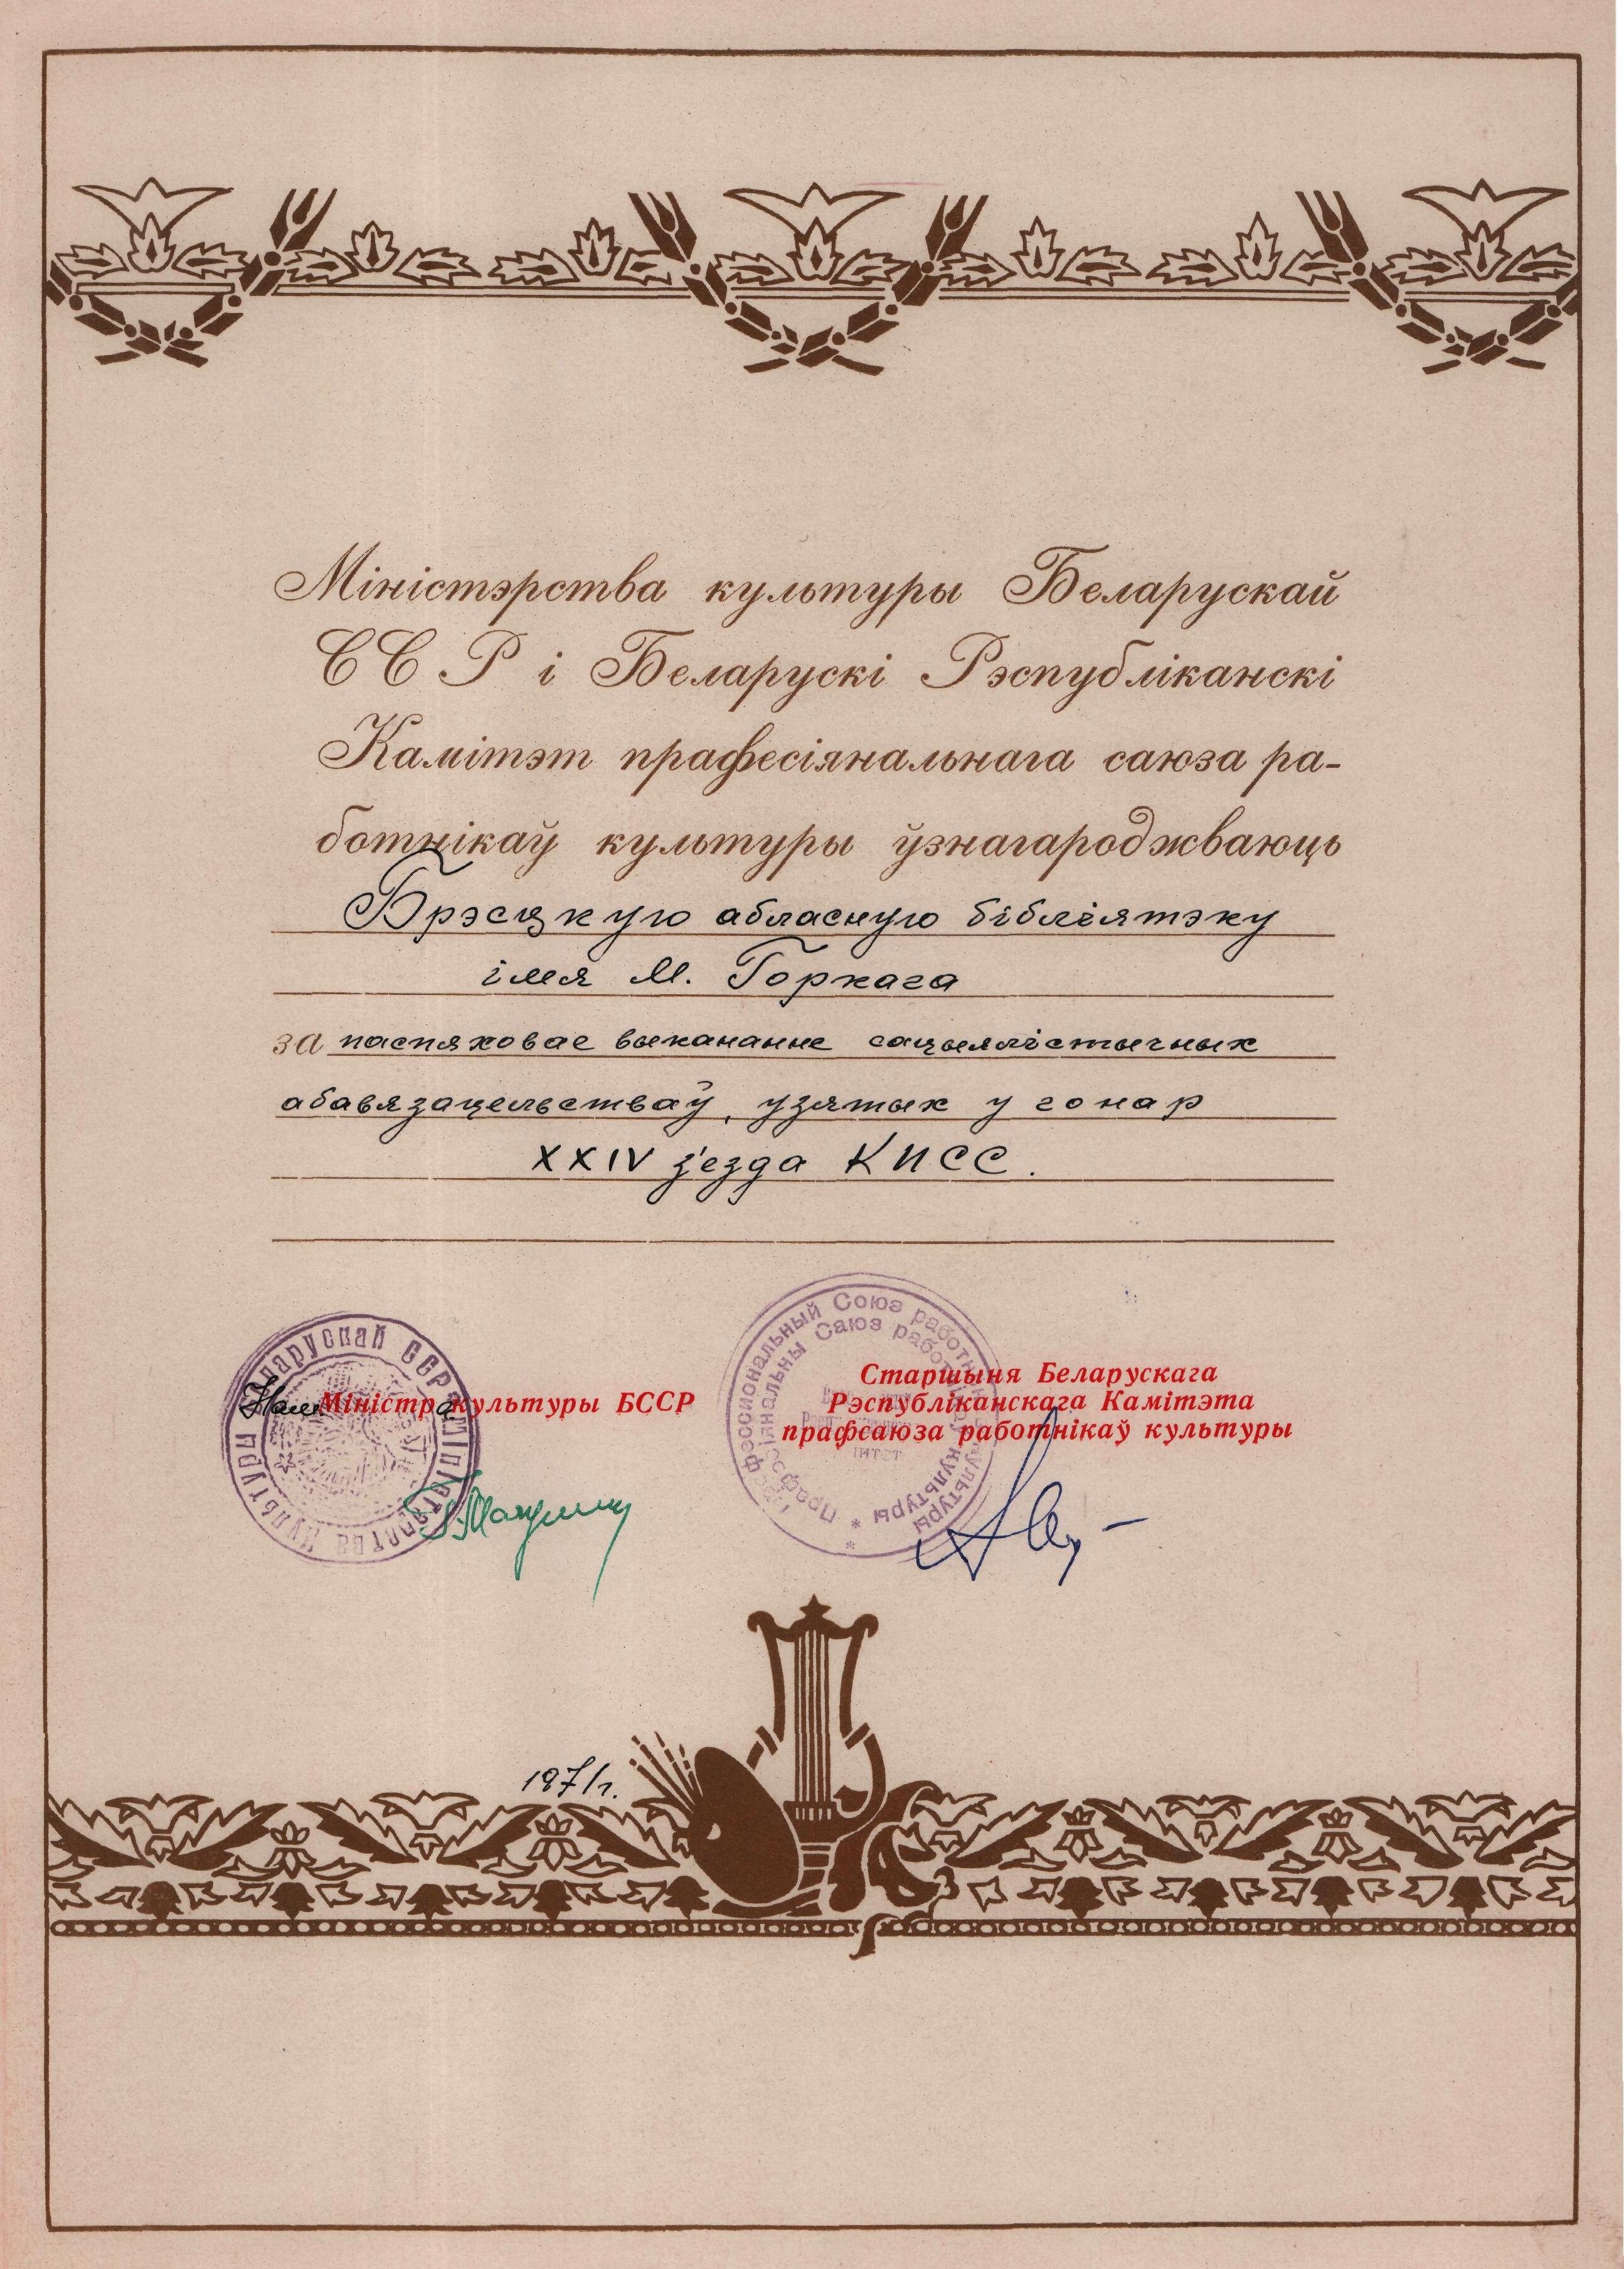 Міністэрства культуры Беларускай
ССР і Беларускі Рэспубліканскі
Камітэт прафесіянальнага саюза ра-
ботнікаў культуры ўзнагароджваюць
Брэсцкую абласную бібліятэку
імя М. Горкага
за паспяховае выкананне сацыялістычных
абавязацельстваў, узятых у гонар
XXIV з'езда КПСС.
Нам. Міністра культуры БССР
Старшыня Беларускага
Рэспубліканскага Камітэта
прафсаюза работнікаў культуры
Беларускай ССР * Міністэрства культуры
Профессиональный Союз работников культуры *
Прафесіянальны Саюз работнікаў культуры *
1971 г.